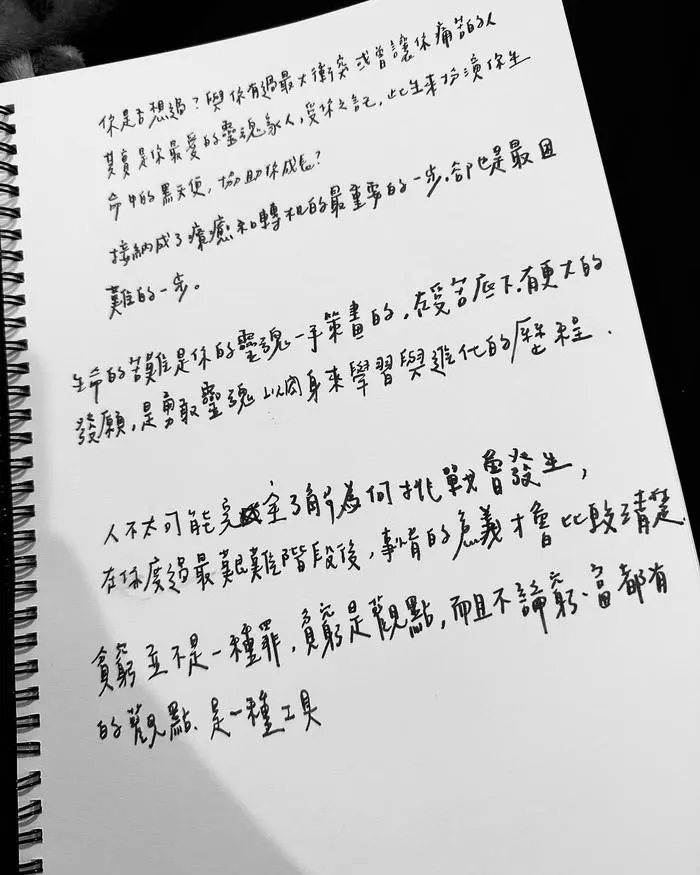 你是否想過？與你有過最大衝突或曾讓你痛苦的人
其實是你最愛的靈魂家人，受你之託，此生來扮演你生
命中的黑天使，協助你成長？
接納成了療癒和轉機的最重要的一步.卻也是最困
難的一步。
生命的苦難是你的靈魂一手策畫的，在受苦底下.有更大的
發願，是勇敢靈魂以肉身來學習與進化的歷程.
人不太可能完全了解為何挑戰會發生，
在你度過最艱難階段後，事情的意義才會比較清楚.
貧窮並不是一種罪，貧窮是觀點，而且不論窮、富都有
的觀點.是一種工具